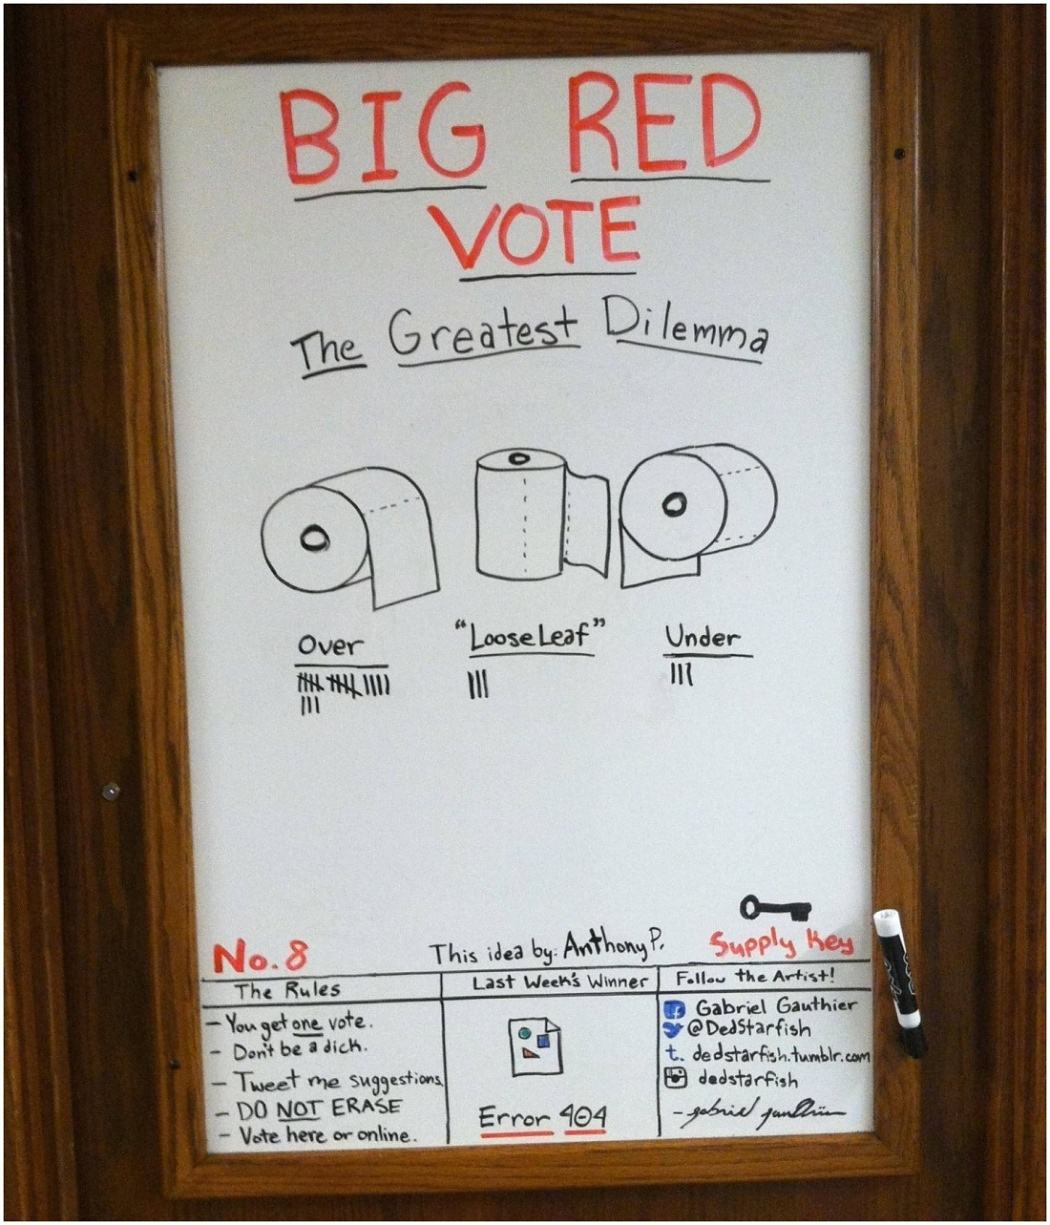 BIG RED
VOTE
The Greatest Dilemma
Over
"Loose Leaf"
Under
No. 8
This idea by: Anthony P.
Supply Key
The Rules
- You get one vote.
- Don't be a dick.
- Tweet me suggestions.
- DO NOT ERASE
- Vote here or online.
Last Week's Winner
Error 404
Follow the Artist!
f Gabriel Gauthier
@DedStarfish
t. dedstarfish.tumblr.com
dedstarfish
- gabriel gauthier